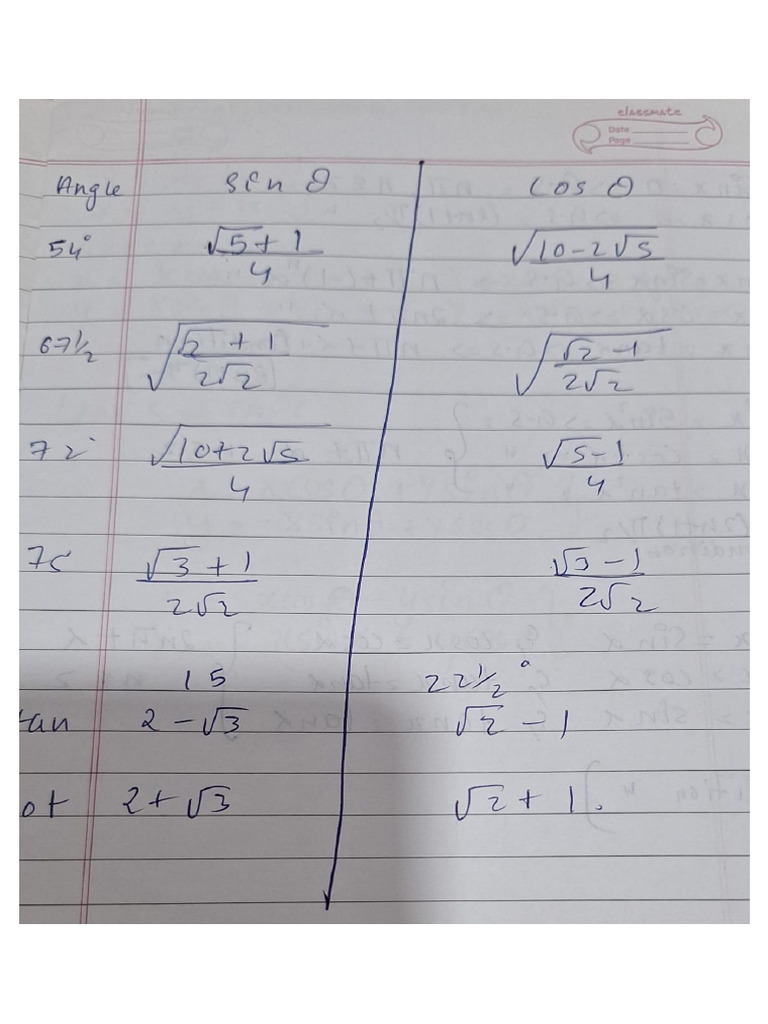 classmate
Date
Page
Angle sin θ cos θ
54° √5+1/4 √10-2√5/4
67½ √(√2+1/2√2) √(√2-1/2√2)
72° √10+2√5/4 √5-1/4
75 √3+1/2√2 √3-1/2√2
15 22½°
tan 2-√3 √2-1
ot 2+√3 √2+1.